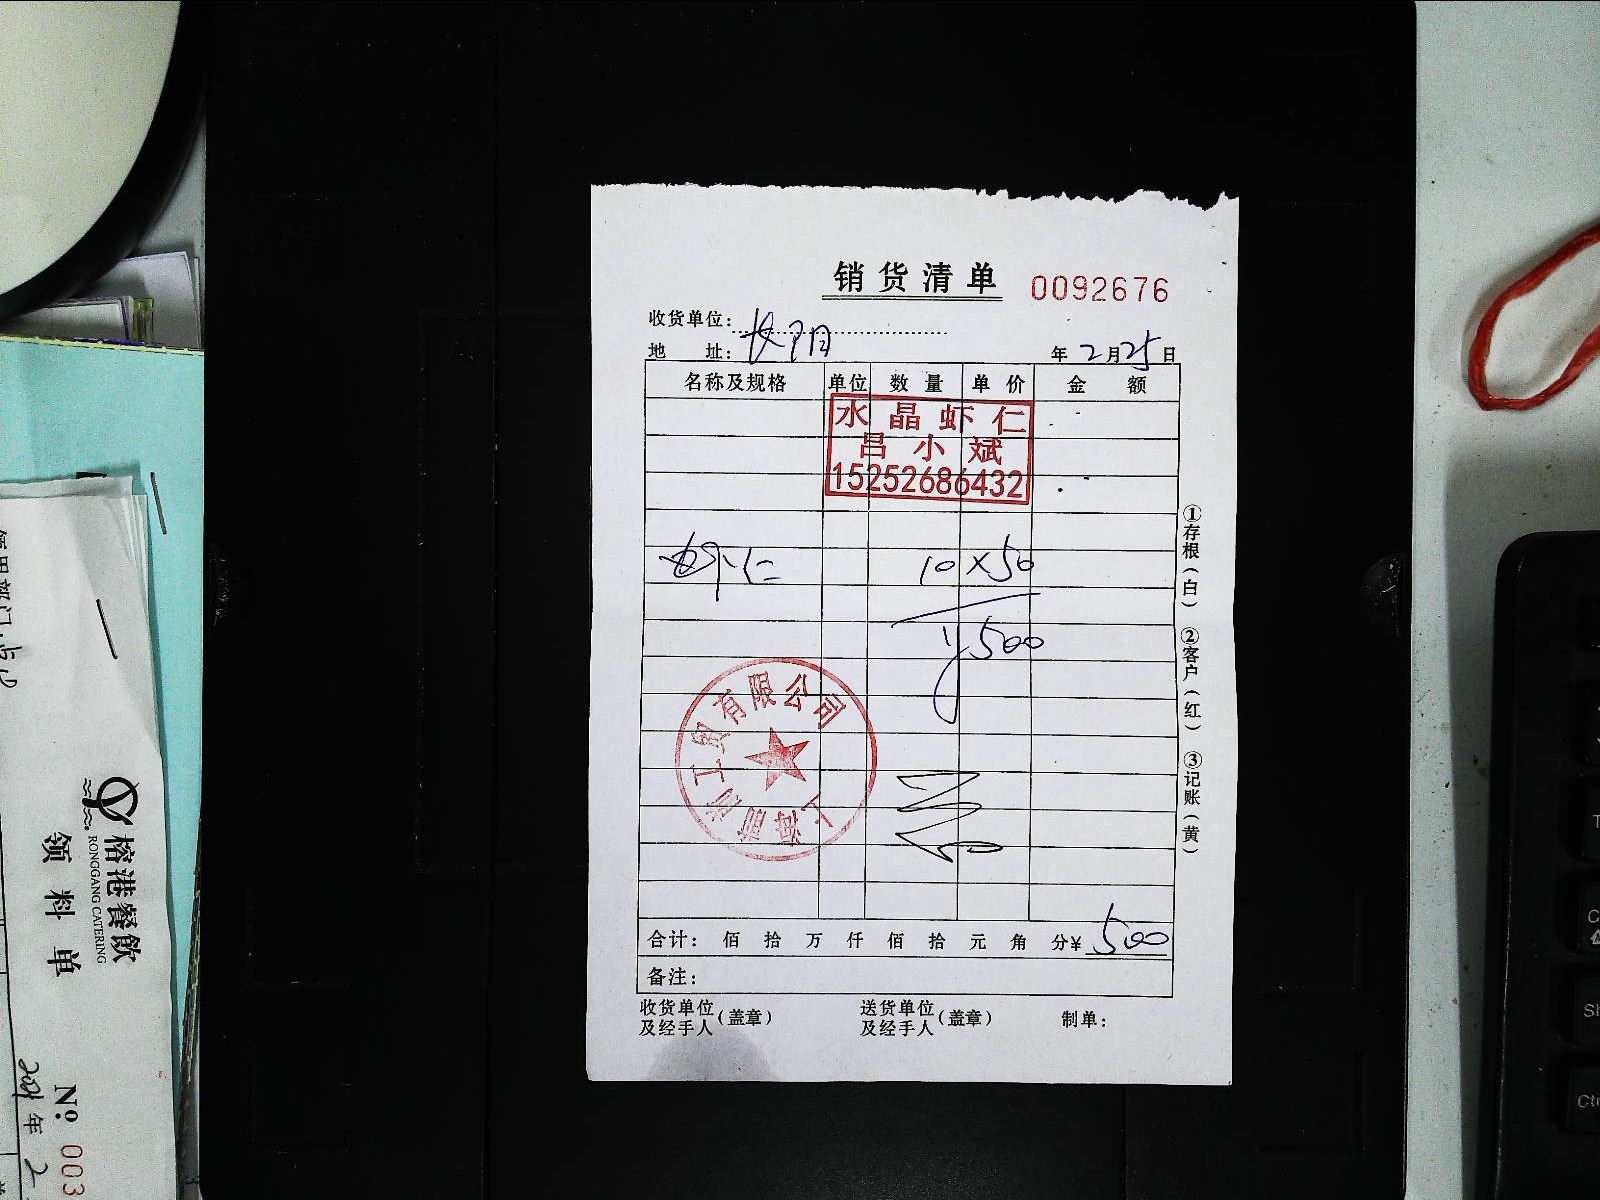 销货清单 0092676
收货单位：
地 址： 年 2 月 25 日
名称及规格 单位 数量 单价 金额
水晶虾仁
吕小斌
15252686432
虾仁 10 × 50
¥500
上海 尚工贸有限公司
合计： 佰 拾 万 仟 佰 拾 元 角 分 ¥ 500
备注：
收货单位及经手人（盖章） 送货单位及经手人（盖章） 制单：
①存根（白） ②客户（红） ③记账（黄）
榕港餐飲
RONGGANG CATERING
领料单
№ 003
2021 年 2